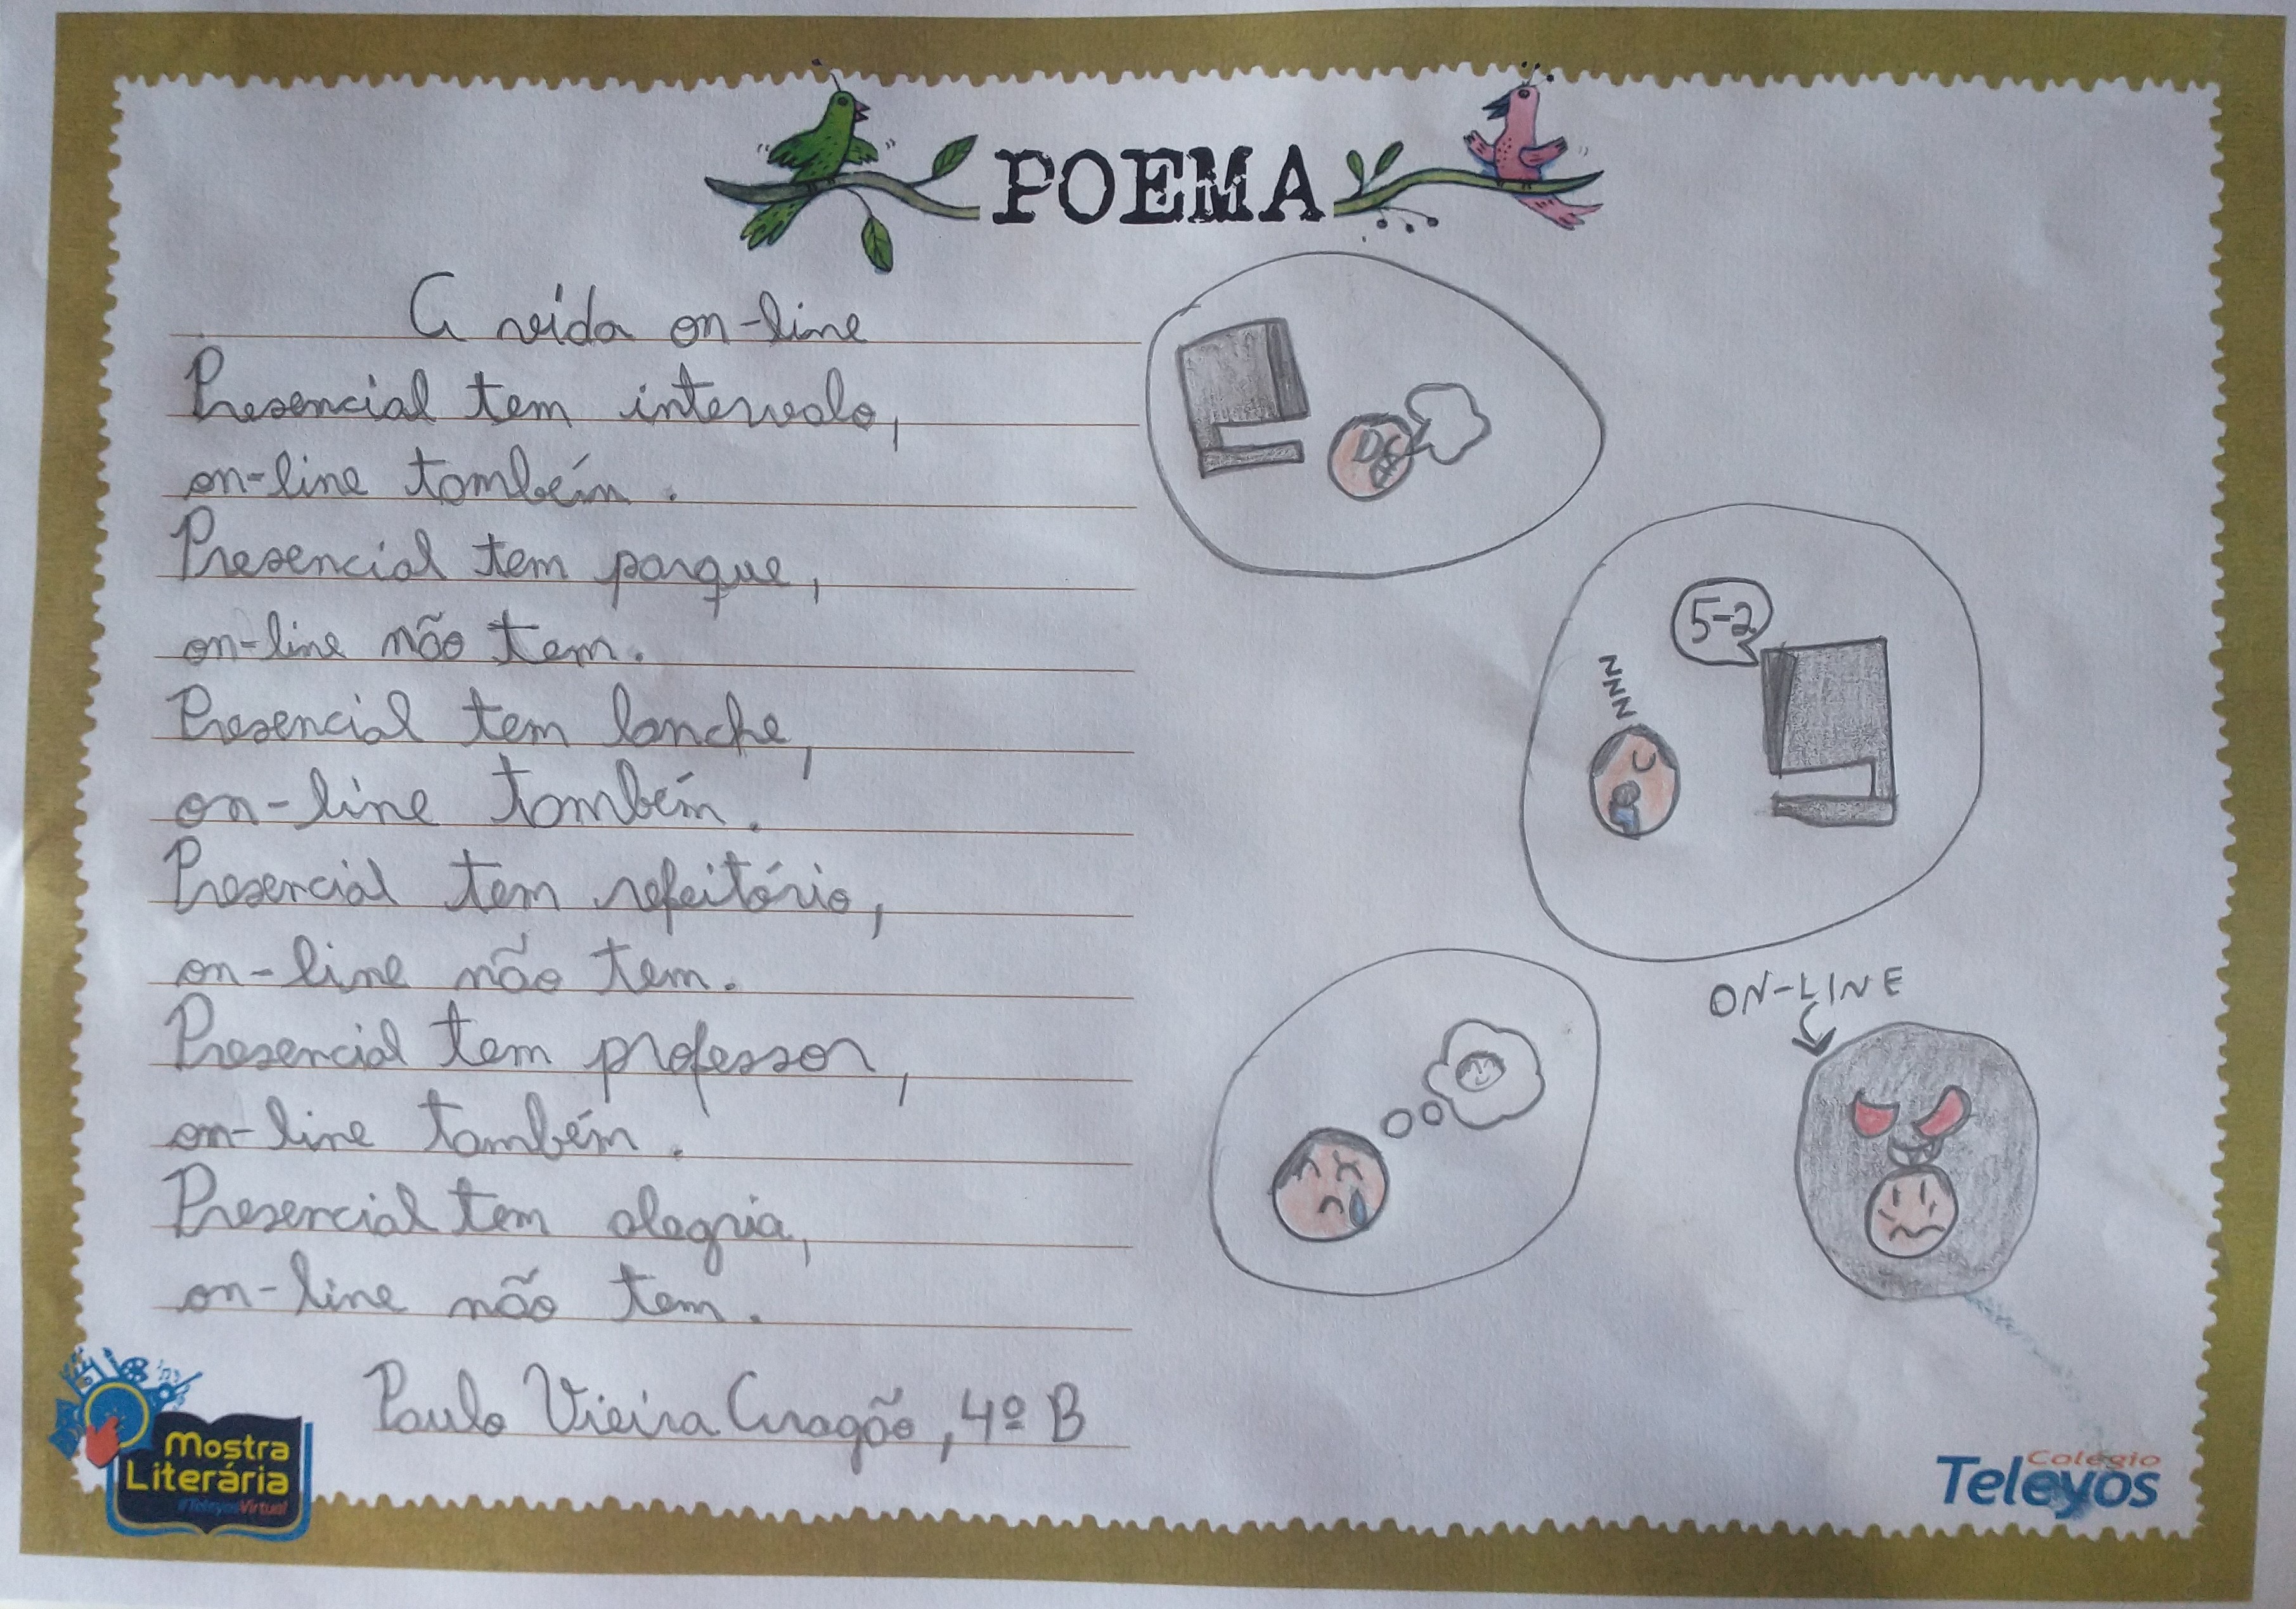 POEMA
A vida on-line
Presencial tem intervalo,
on-line também.
Presencial tem parque,
on-line não tem.
Presencial tem lanche,
on-line também.
Presencial tem refeitório,
on-line não tem.
Presencial tem professor,
on-line também.
Presencial tem alegria,
on-line não tem.
Paulo Vieira Aragão, 4º B
5-2
ZZZZ
ON-LINE
Mostra
Literária
#TeleyosVirtual
Colégio
Teleyos